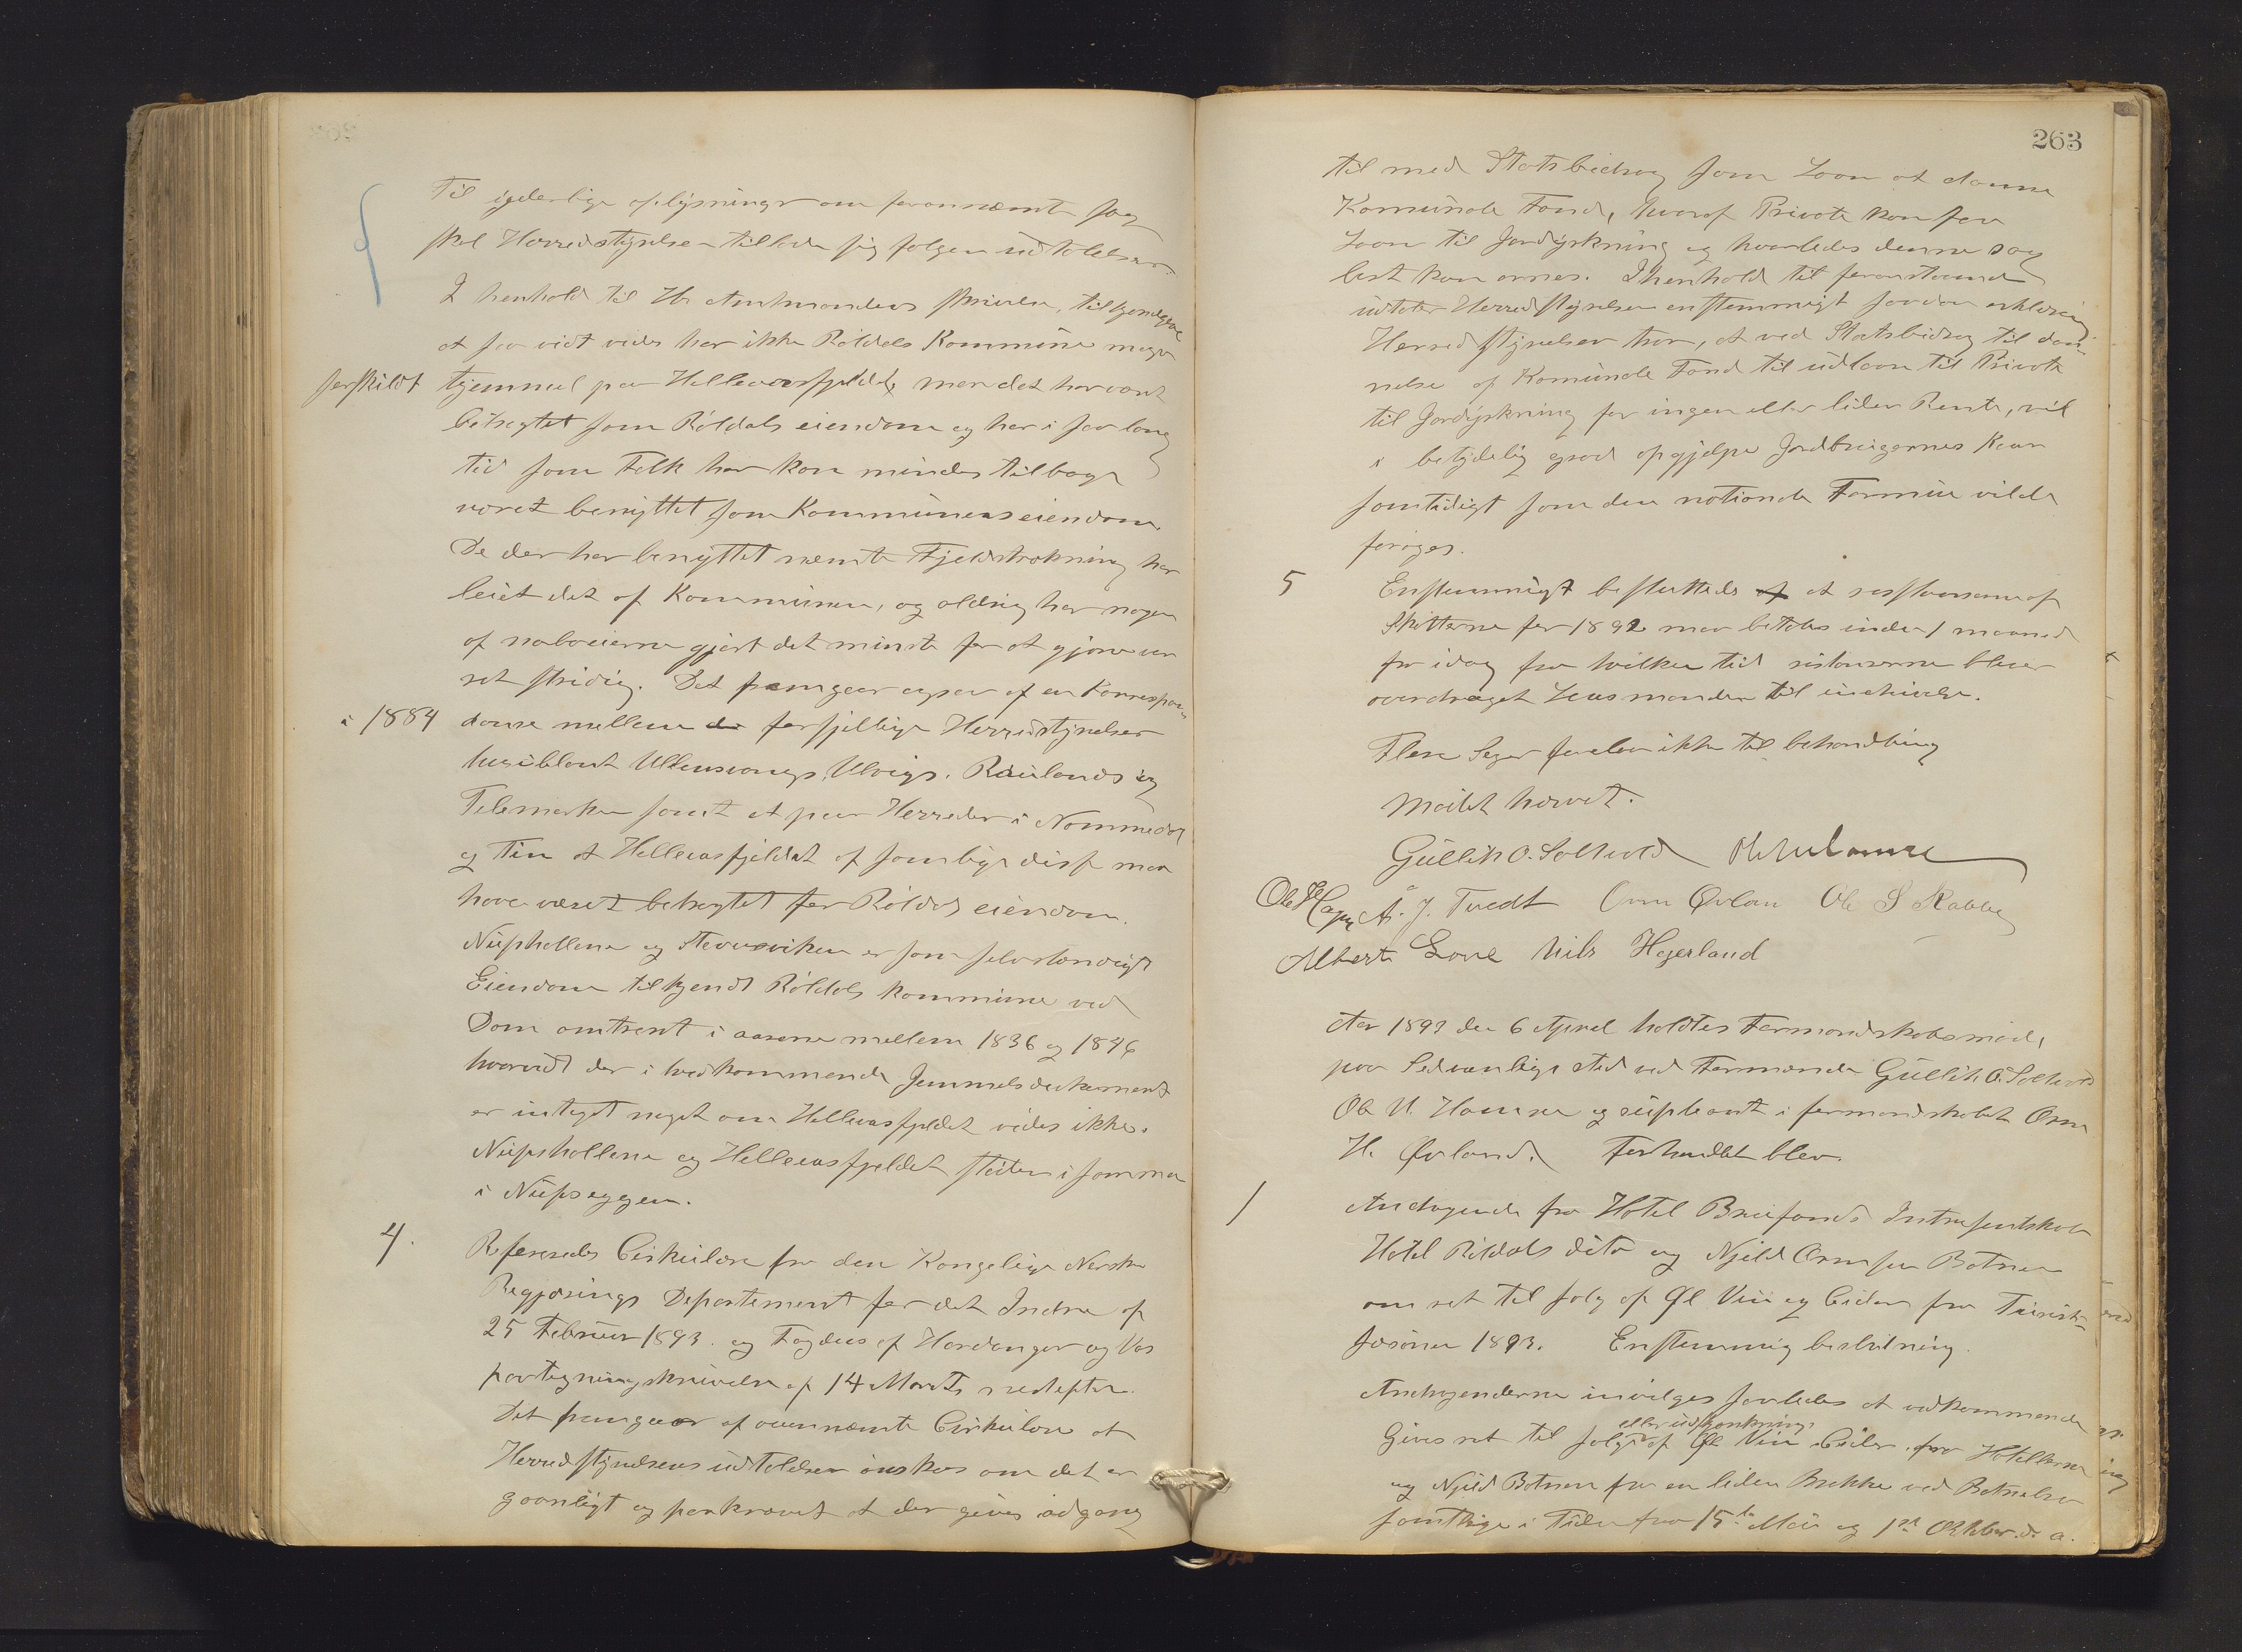 Til yderlige oplysninger om forannævnte sag
skal Herredstyrelsen tillade sig følgende udtalelser.
I henhold til Hr Amtmandens skrivelse, tilkjendgives
at saa vidt vides har ikke Röldals Kommune nogen
serskildt Hjemmel paa Helleaasfjeldet, men det har vært
betragtet som Röldals eiendom og har i saa lang
tid som Folk her kan mindes tilbage
været benyttet som Kommunens eiendom.
De der har benyttet nævnte Fjeldstrækning har
leiet det af Kommunen, og aldrig har nogen
af naboeierne gjort det mindste for at gjøre den
ret stridig. Det fremgaar ogsaa af en Korrespon-
i 1884 danse mellem forskjellige Herredstyrelser
hvoriblant Ullensvangs, Ulviks, Raulands i
Telemarken samt et par Herreder i Nommedal
og Tin at Helleaasfjeldet af samtlige disse maa
have været betragtet for Röldals eiendom.
Nupshallene og Stavsviken er som selvstændigt
Eiendom tilkjendt Röldals kommune ved
Dom omtrent i aarene mellem 1836 og 1846
hvorvidt der i vedkommende Jemmelsdokument
er intaget noget om Helleaasfjeldet vides ikke.
Nupshallene og Helleaasfjeldet støder i sammen
i Nupseggen.
4. Refereredes Cirkulære fra den Kongelige Norske
Regjerings Departement for det Indre af
25 Februar 1893 og Fogdens af Hardanger og Vos
paategningsskrivelse af 14 Marts næstefter.
Det fremgaar af ovennævnte Cirkulære at
Herredstyrelsens udtalelser ønskes om det er
gavnligt og paakrævet at der gives adgang
263
til med Statsbidrag som Laan at danne
Komunale Fond, hvoraf Private kan faa
Laan til Jorddyrkning og hvorledes denne sag
best kan ornes. I henhold til foranstaaende
udtaler Herredstyrelsen enstemmigt saadan erklæring
Herredstyrelsen tror, at ved Statsbidrag til dan-
nelse af Komunale Fond til udlaan til Private
til Jordyrkning for ingen eller liden Rente, vil
i betydelig grad ophjelpe Jordbrugernes Kaar
samtidigt som den nationale Formue vilde
forøges.
5 Enstemmigt besluttedes at restanserne af
Skatterne for 1892 maa betales inden 1 maaned
fra idag fra hvilken tid restanserne bliver
overdraget Lensmanden til inddrivelse.
Flere Sager forelaa ikke til behandling
Mødet hævet.
Gullik O. Solhold
Ole Hagen A. J. Tvedt Orm Øvland Ole S Rabbe
Alberte Love Nils Hegerland
Aar 1893 den 6 April holdtes Formandskabsmøde
paa Sedvanlige sted ved Formanden Gullik O. Solhold
Ole N. Hamre og supleant i formandskabet Orm
H. Øvland. Forhandlet blev.
1 Andragende fra Hotel Breifonds Intresentskab
Hotel Röldals dito og Njeld Ormsen Botnen
om ret til salg af Øl Vin og Cider for Turist-
sæsonen 1893. Enstemmig beslutning.
Andragenderne invilges saaledes at vedkommende
eller udskjænkning
Gives ret til salg af Øl Vin Cider for Hotellerne
og Njeld Botnen for en liden Brakke ved Botnelver
samtlige i Tiden fra 15de Mai og 1st Oktbr. d. a.